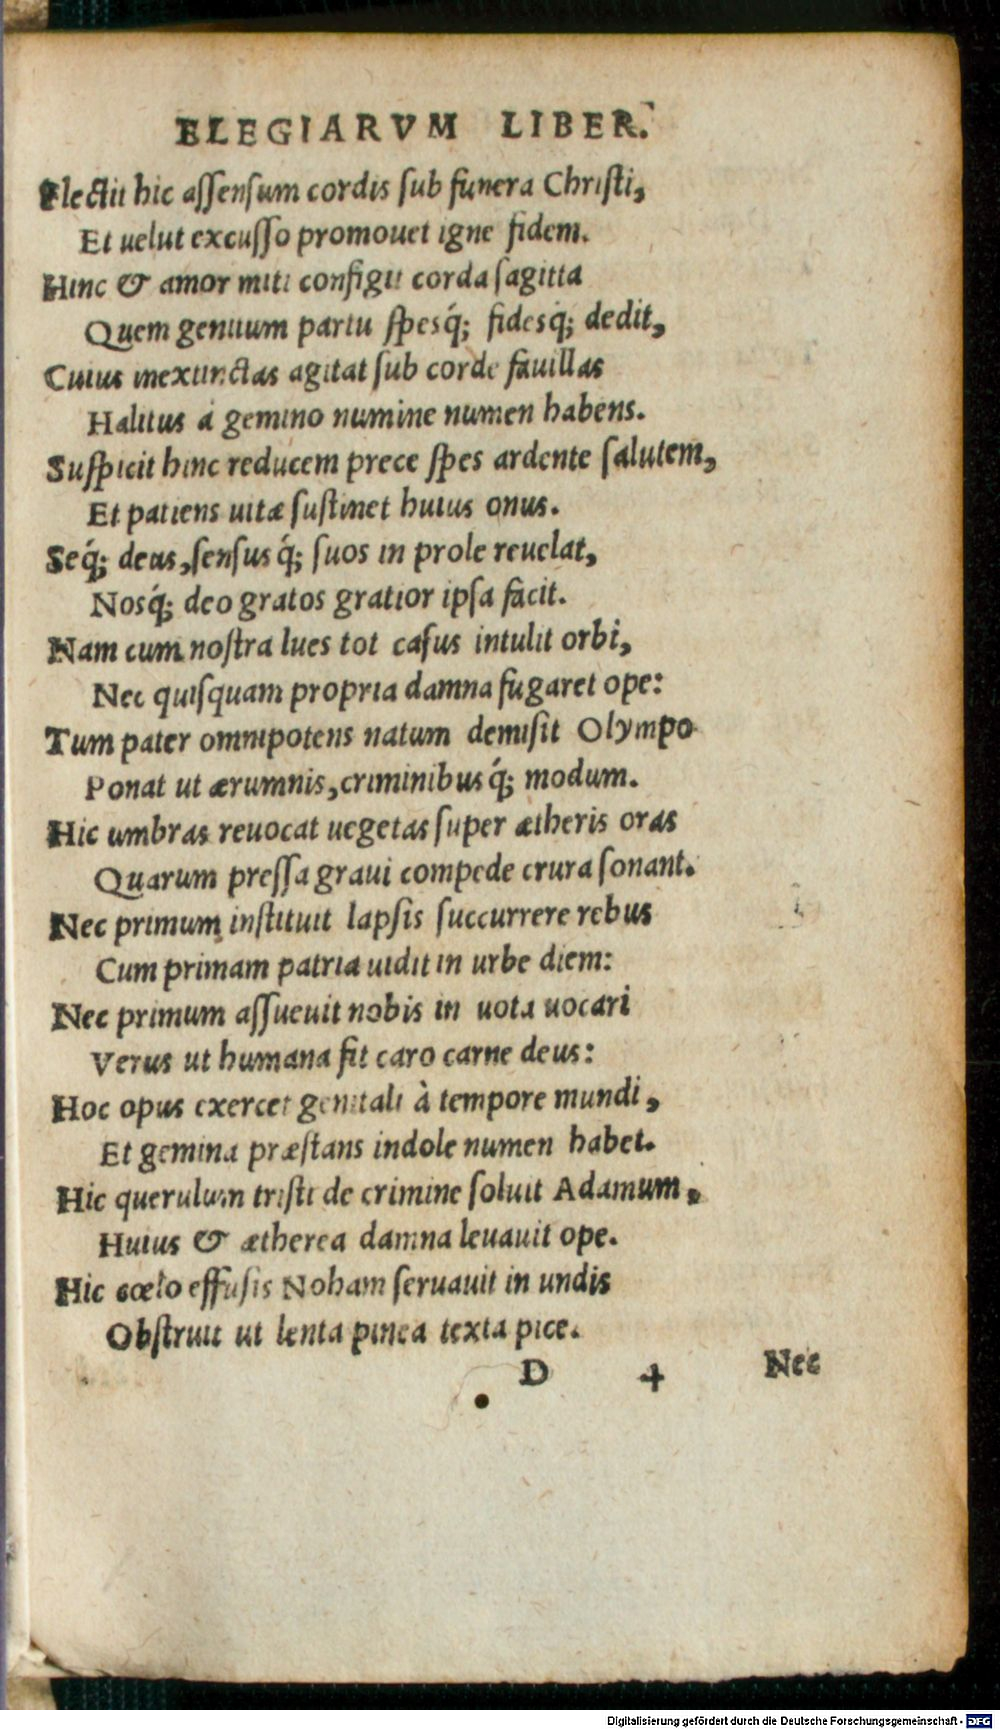 ELEGIARVM LIBER.
Flectit hic assensum cordis sub funera Christi,
Et uelut excusso promouet igne fidem.
Hinc & amor miti configit corda sagitta
Quem genitum partu spesq́; fidesq́; dedit,
Cuius inextinctas agitat sub corde fauillas
Halitus á gemino numine numen habens.
Suspicit hinc reducem prece spes ardente salutem,
Et patiens uitæ sustinet huius onus.
Seq́; deus, sensusq́; suos in prole reuelat,
Nosq́; deo gratos gratior ipsa facit.
Nam cum nostra lues tot casus intulit orbi,
Nec quisquam propria damna fugaret ope:
Tum pater omnipotens natum demisit Olympo
Ponat ut ærumnis, criminibusq́; modum.
Hic umbras reuocat uegetas super ætheris oras
Quarum pressa graui compede crura sonant.
Nec primum instituit lapsis succurrere rebus
Cum primam patria uidit in urbe diem:
Nec primum assueuit nobis in uota uocari
Verus ut humana fit caro carne deus:
Hoc opus exercet genitali à tempore mundi,
Et gemina præstans indole numen habet.
Hic querulum tristi de crimine soluit Adamum,
Huius & ætherea damna leuauit ope.
Hic cœlo effusis Noham seruauit in undis
Obstruit ut lenta pinea texta pice.
D 4 Nec
Digitalisierung gefördert durch die Deutsche Forschungsgemeinschaft - DFG